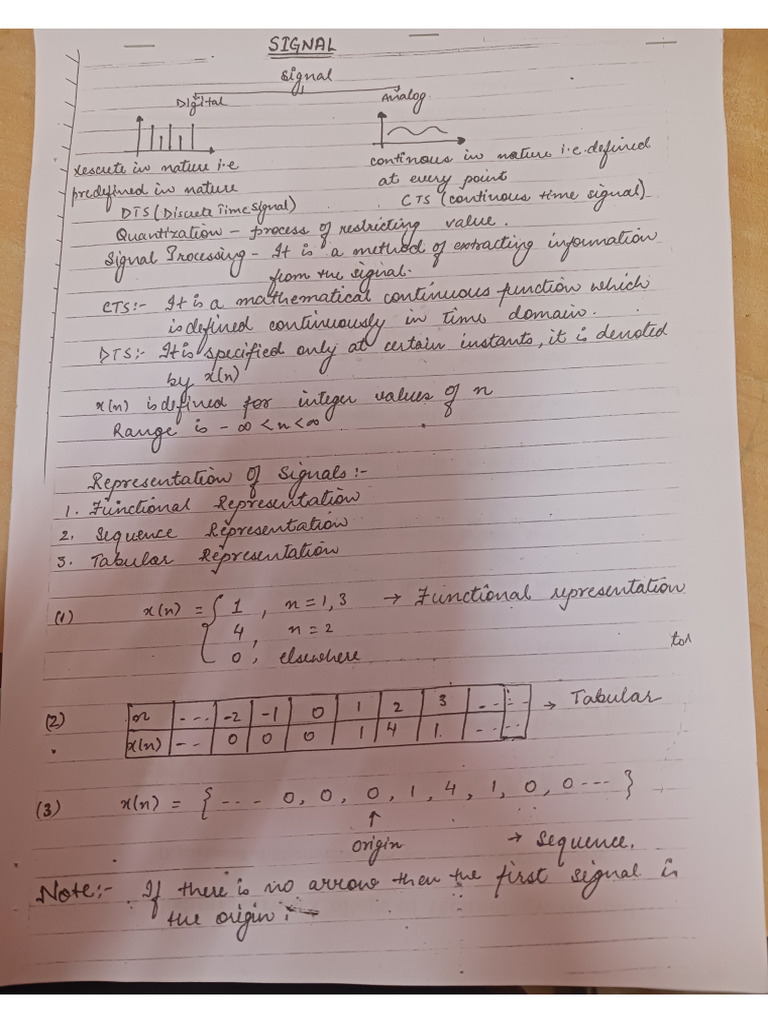 SIGNAL
Signal
Digital Analog
rescrete in nature i.e continous in nature i.e. defined
predefined in nature at every point
DTS (Discrete Time Signal) CTS (continous time signal)
Quantization - process of restricting value.
Signal Processing - It is a method of extracting information
from the signal.
CTS:- It is a mathematical continuous function which
is defined continuously in time domain.
DTS:- It is specified only at certain instants, it is denoted
by x(n)
x(n) is defined for integer values of n
Range is -∞ < n < ∞
Representation of Signals:-
1. Functional Representation
2. Sequence Representation
3. Tabular Representation
(1) x(n) = { 1, n = 1, 3 → Functional representation
4, n = 2
0, elsewhere
tor
(2) n --- -2 -1 0 1 2 3 --- → Tabular
x(n) -- 0 0 0 1 4 1. ---
(3) x(n) = { --- 0, 0, 0, 1, 4, 1, 0, 0 --- }
↑
origin → Sequence.
Note:- If there is no arrow then the first signal is
the origin.